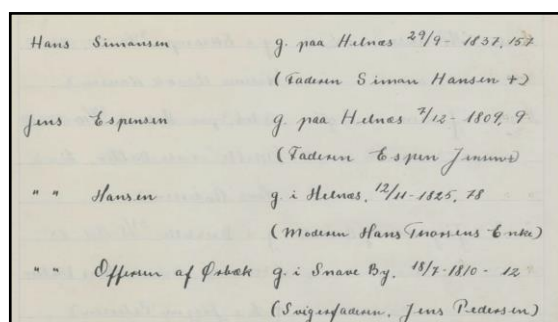 Hans Simonsen g. paa Helnæs 29/9 - 1837, 157
(Faderen Simon Hansen +)
Jens Espensen g. paa Helnæs 7/12 - 1809, 9
(Faderen Espen Jensens)
" " Hansen g. i Helnæs, 12/11 - 1825, 78
(Moderen Hans Thorsens Enke)
" " Offersen af Ørbæk g. i Snave By. 18/7 - 1810 - 12
(Svigerfaderen, Jens Pedersen)